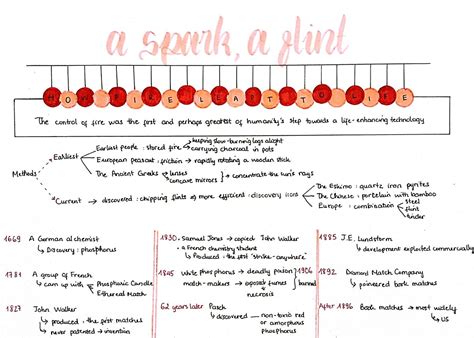 a spark, a flint
HOW FIRE LEAPT TO LIFE
The control of fire was the first and perhaps greatest of humanity's step towards a life-enhancing technology
Methods
Earliest
Earliest people : stored fire
keeping slow-burning logs alight
carrying charcoal in pots
European peasant : friction → rapidly rotating a wooden stick
The Ancient Greeks
lenses
concave mirrors
concentrate the sun's rays
Current → discovered : chipping flints
more efficient : discovery
The Eskimo : quartz iron pyrites
The Chinese : porcelain with bamboo
Europe : combination
steel
flint
tinder
1669 A German alchemist
Discovery : phosphorus
1781 A group of French
came up with
Phosphoric Candle
Ethereal Match
1827 John Walker
produced : the first matches
never patented → invention
1830 Samuel Jones → copied John Walker
a French chemistry student
Produced : the first "strike-anywhere"
1845 White phosphorus → deadly poison
match-makers → exposed fumes
1906
banned
necrosis
62 years later Pasch
discovered → non-toxic red
or amorphous
phosphorus
1885 J.E. Lundstorm
development exploited commercially
1892 Diamond Match Company
pioneered book matches
After 1896 Book matches → most widely
US